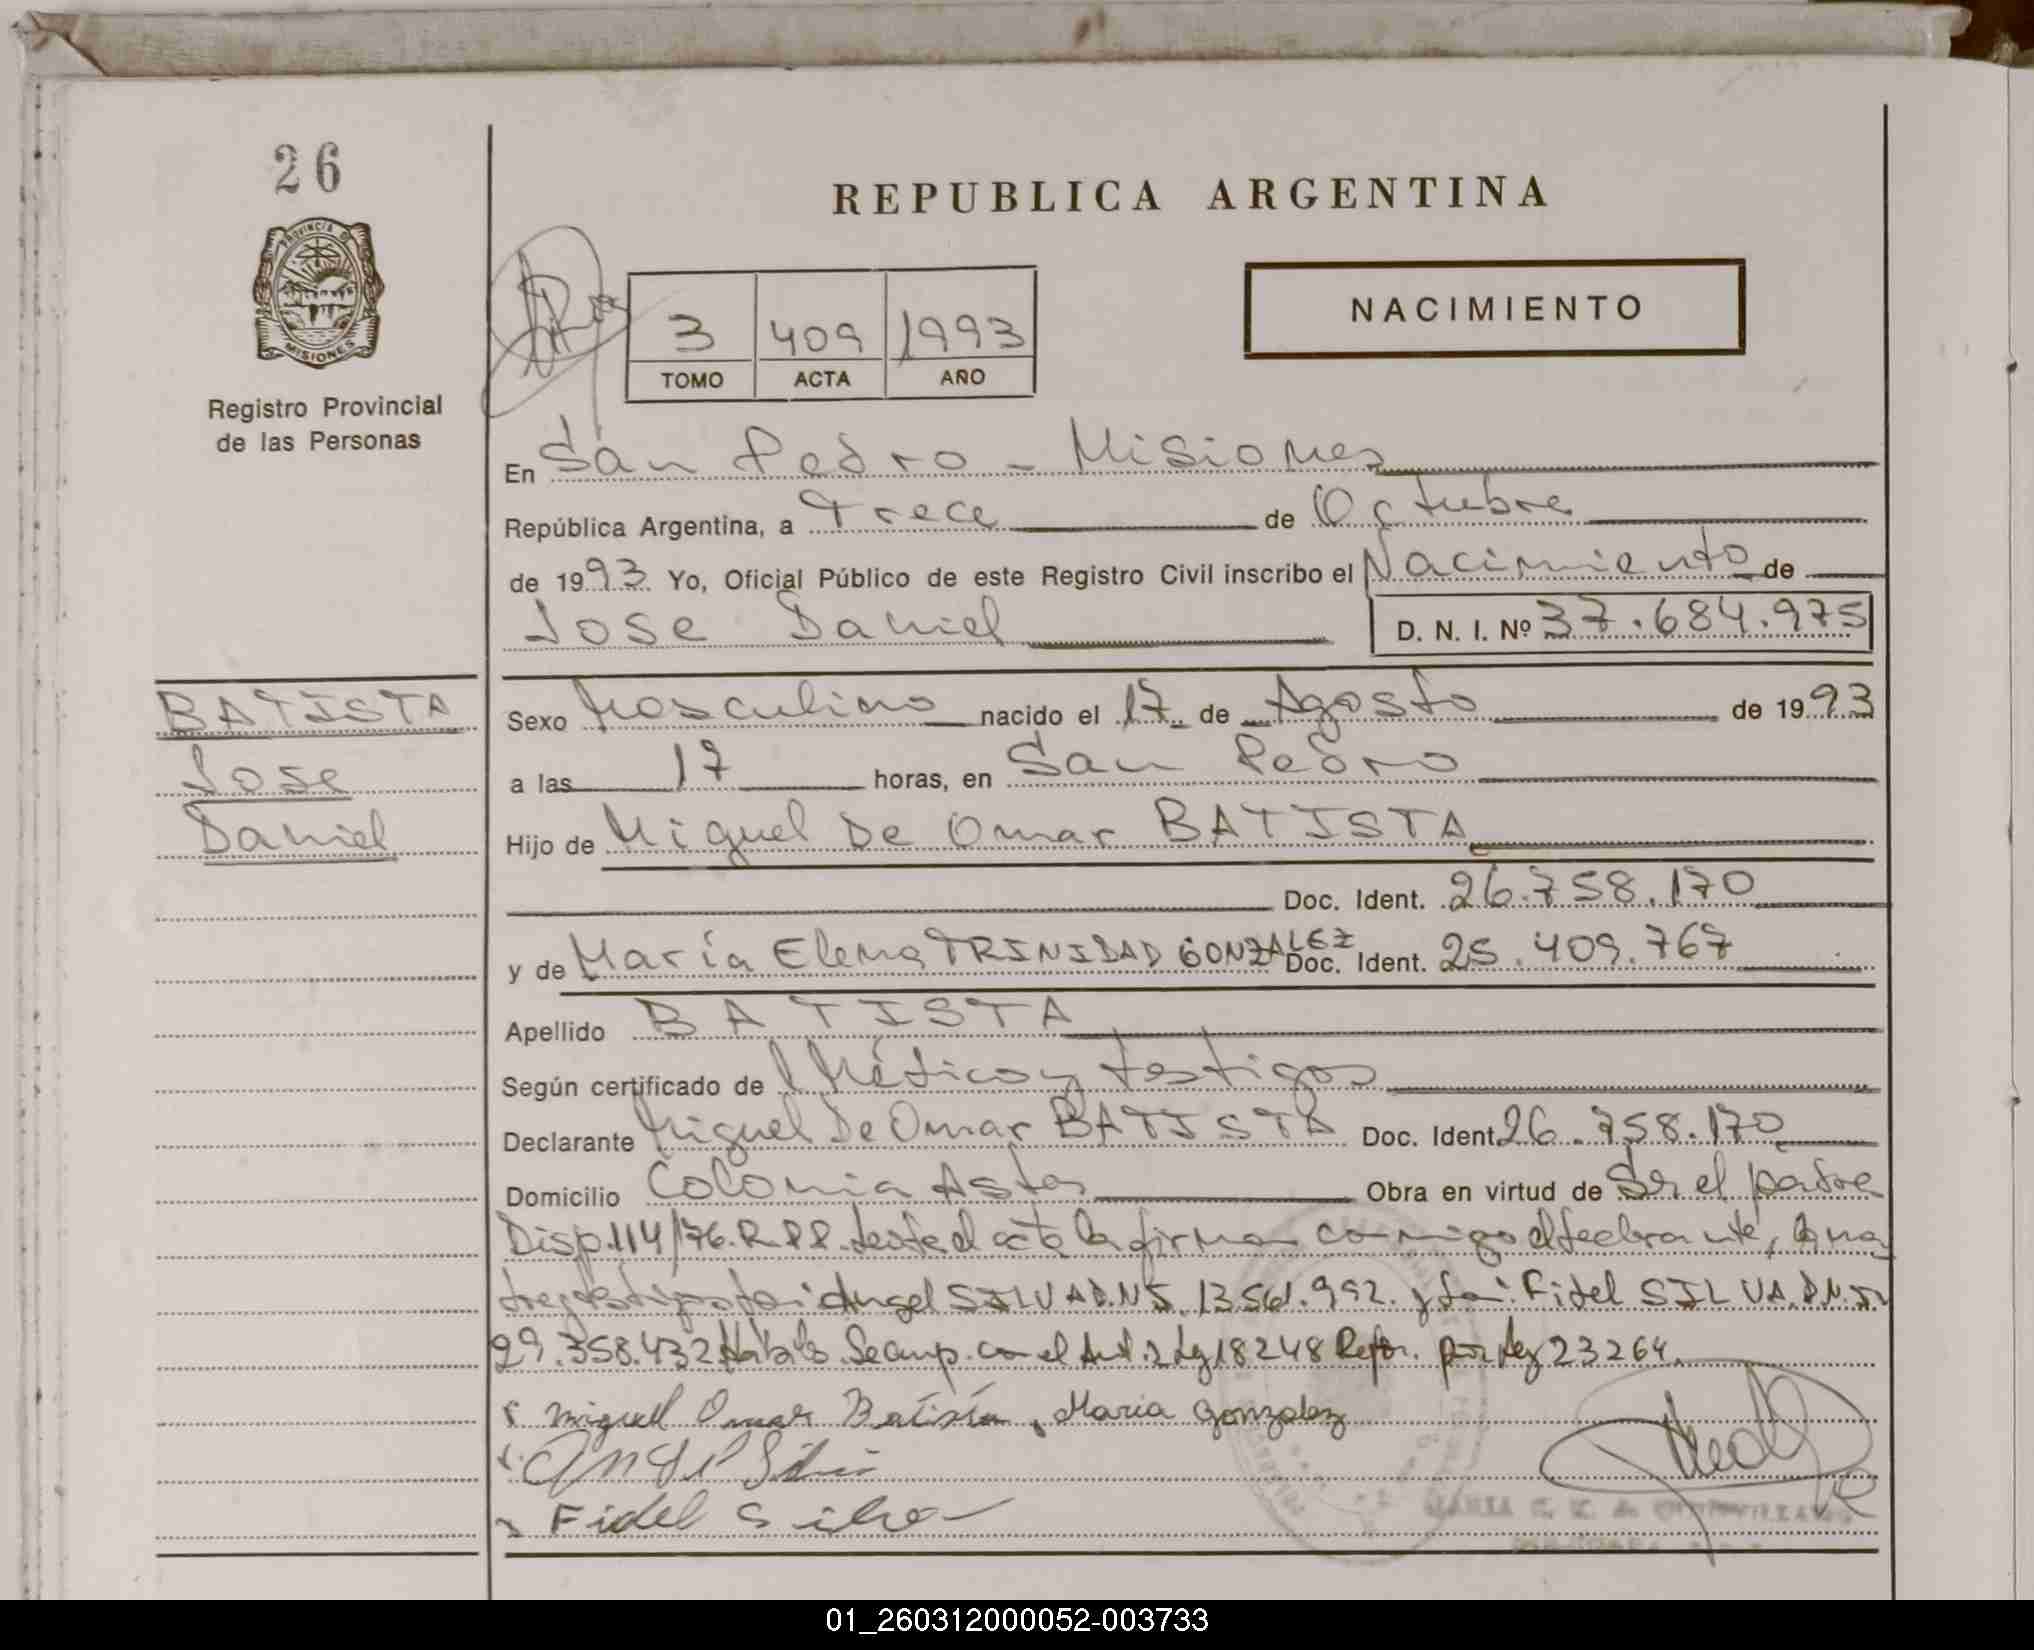 26
PROVINCIA DE
MISIONES
Registro Provincial
de las Personas
REPUBLICA ARGENTINA
NACIMIENTO
3 409 1993
TOMO ACTA AÑO
En San Pedro - Misiones
República Argentina, a Trece de Octubre
de 1993 Yo, Oficial Público de este Registro Civil inscribo el Nacimiento de
Jose Daniel D. N. I. Nº 37.684.975
BATISTA
Jose
Daniel
Sexo Masculino nacido el 17 de Agosto de 1993
a las 17 horas, en San Pedro
Hijo de Miguel De Omar BATISTA
Doc. Ident. 26.758.170
y de María Elena TRINIDAD GONZALEZ Doc. Ident. 25.409.767
Apellido BATISTA
Según certificado de Médico y testigos
Declarante Miguel De Omar BATISTA Doc. Ident. 26.758.170
Domicilio Colonia Obra en virtud de Ser el padre
Disp. 114/76. R.P.P. el acta la firman conmigo el declarante, la ma
dre Angel SILVA D.N.I. 13561.992. y Fidel SILVA. D.N.I.
29.358.432 Se cump. con el Art. 2 Ley 18248 Refor. por Ley 23264.
Miguel Omar Batista, Maria Gonzalez
Angel Silva
Fidel Silva
01_260312000052-003733